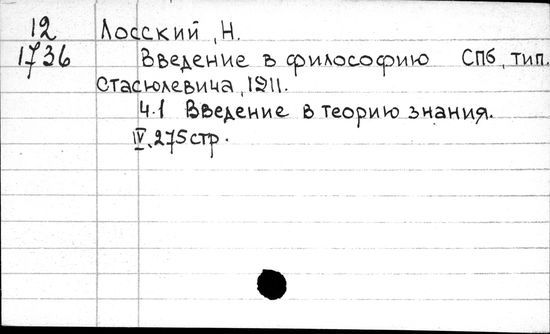 12 Лосский, Н.
1736 Введение в философию СПб, тип.
Стасюлевича, 1911.
Ч.1 Введение в теорию знания.
IV, 275 стр.